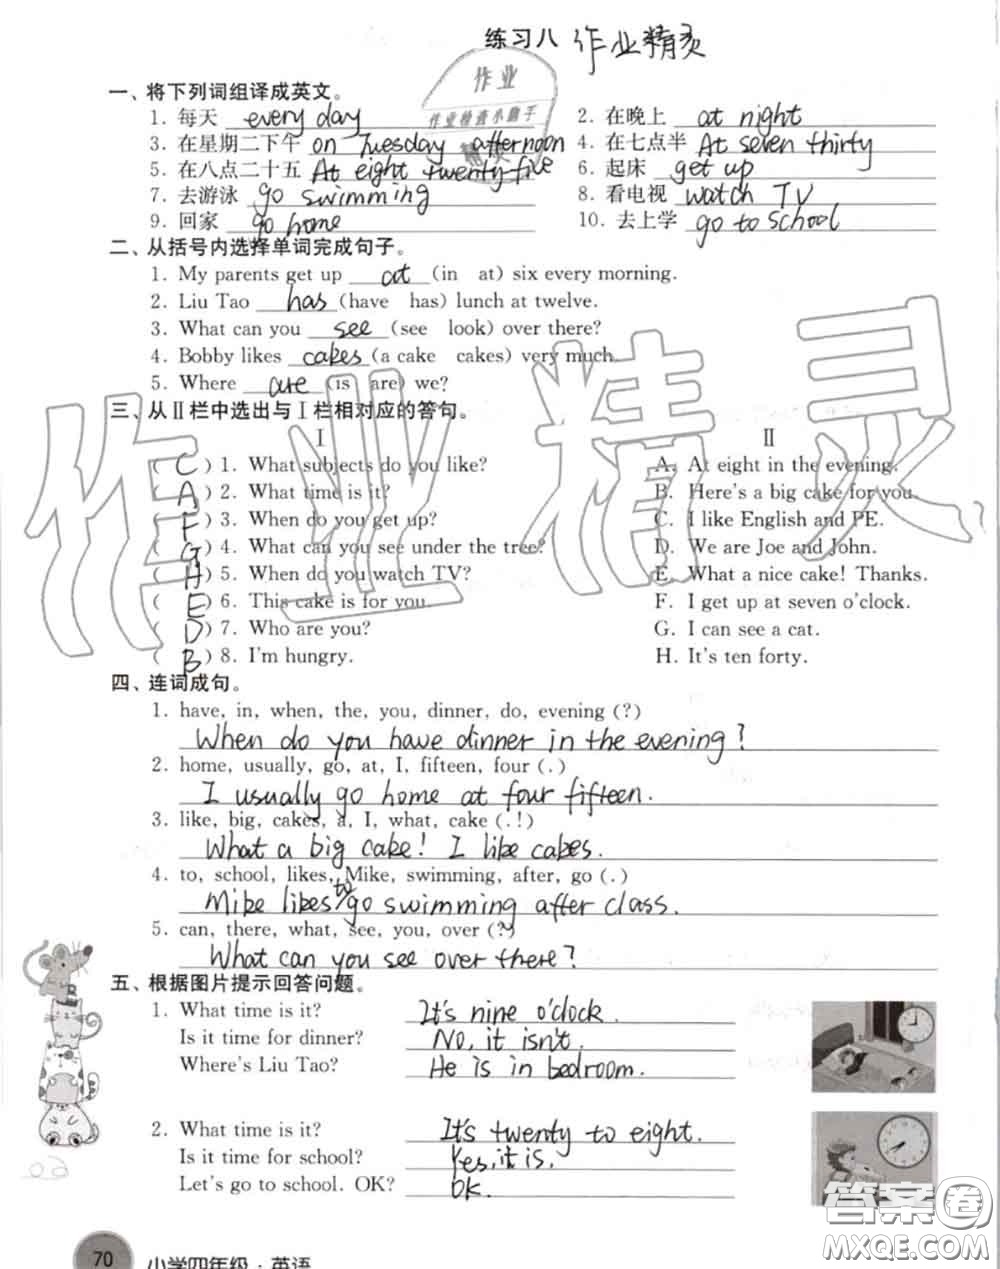 练习八 作业精灵
作业
作业检查小助手
精灵
一、将下列词组译成英文。
1. 每天 every day 2. 在晚上 at night
3. 在星期二下午 on Tuesday afternoon 4. 在七点半 At seven thirty
5. 在八点二十五 At eight twenty-five 6. 起床 get up
7. 去游泳 go swimming 8. 看电视 watch TV
9. 回家 go home 10. 去上学 go to school
二、从括号内选择单词完成句子。
1. My parents get up at (in at) six every morning.
2. Liu Tao has (have has) lunch at twelve.
3. What can you see (see look) over there?
4. Bobby likes cakes (a cake cakes) very much.
5. Where are (is are) we?
三、从Ⅱ栏中选出与Ⅰ栏相对应的答句。
Ⅰ Ⅱ
( C ) 1. What subjects do you like? A. At eight in the evening.
( A ) 2. What time is it? B. Here's a big cake for you.
( F ) 3. When do you get up? C. I like English and PE.
( G ) 4. What can you see under the tree? D. We are Joe and John.
( H ) 5. When do you watch TV? E. What a nice cake! Thanks.
( E ) 6. This cake is for you. F. I get up at seven o'clock.
( D ) 7. Who are you? G. I can see a cat.
( B ) 8. I'm hungry. H. It's ten forty.
作业精灵
四、连词成句。
1. have, in, when, the, you, dinner, do, evening (?)
When do you have dinner in the evening?
2. home, usually, go, at, I, fifteen, four (.)
I usually go home at four fifteen.
3. like, big, cakes, a, I, what, cake (.!)
What a big cake! I like cakes.
4. to, school, likes, Mike, swimming, after, go (.)
Mike likes to go swimming after class.
5. can, there, what, see, you, over (?)
What can you see over there?
五、根据图片提示回答问题。
1. What time is it? It's nine o'clock.
Is it time for dinner? No, it isn't.
Where's Liu Tao? He is in bedroom.
2. What time is it? It's twenty to eight.
Is it time for school? Yes, it is.
Let's go to school. OK? OK.
答案卷
MXQE.COM
70 小学四年级·英语